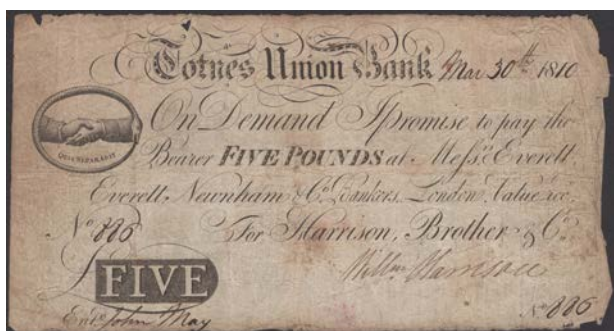 Totnes Union Bank Mar 30th 1810
On Demand I promise to pay the
Bearer FIVE POUNDS at Messrs. Everett
Everett, Newnham & Co. Bankers, London, Value recd.
No 886 For Harrison, Brother & Co.
Willm Harrison
FIVE
Entd. John May
No 886